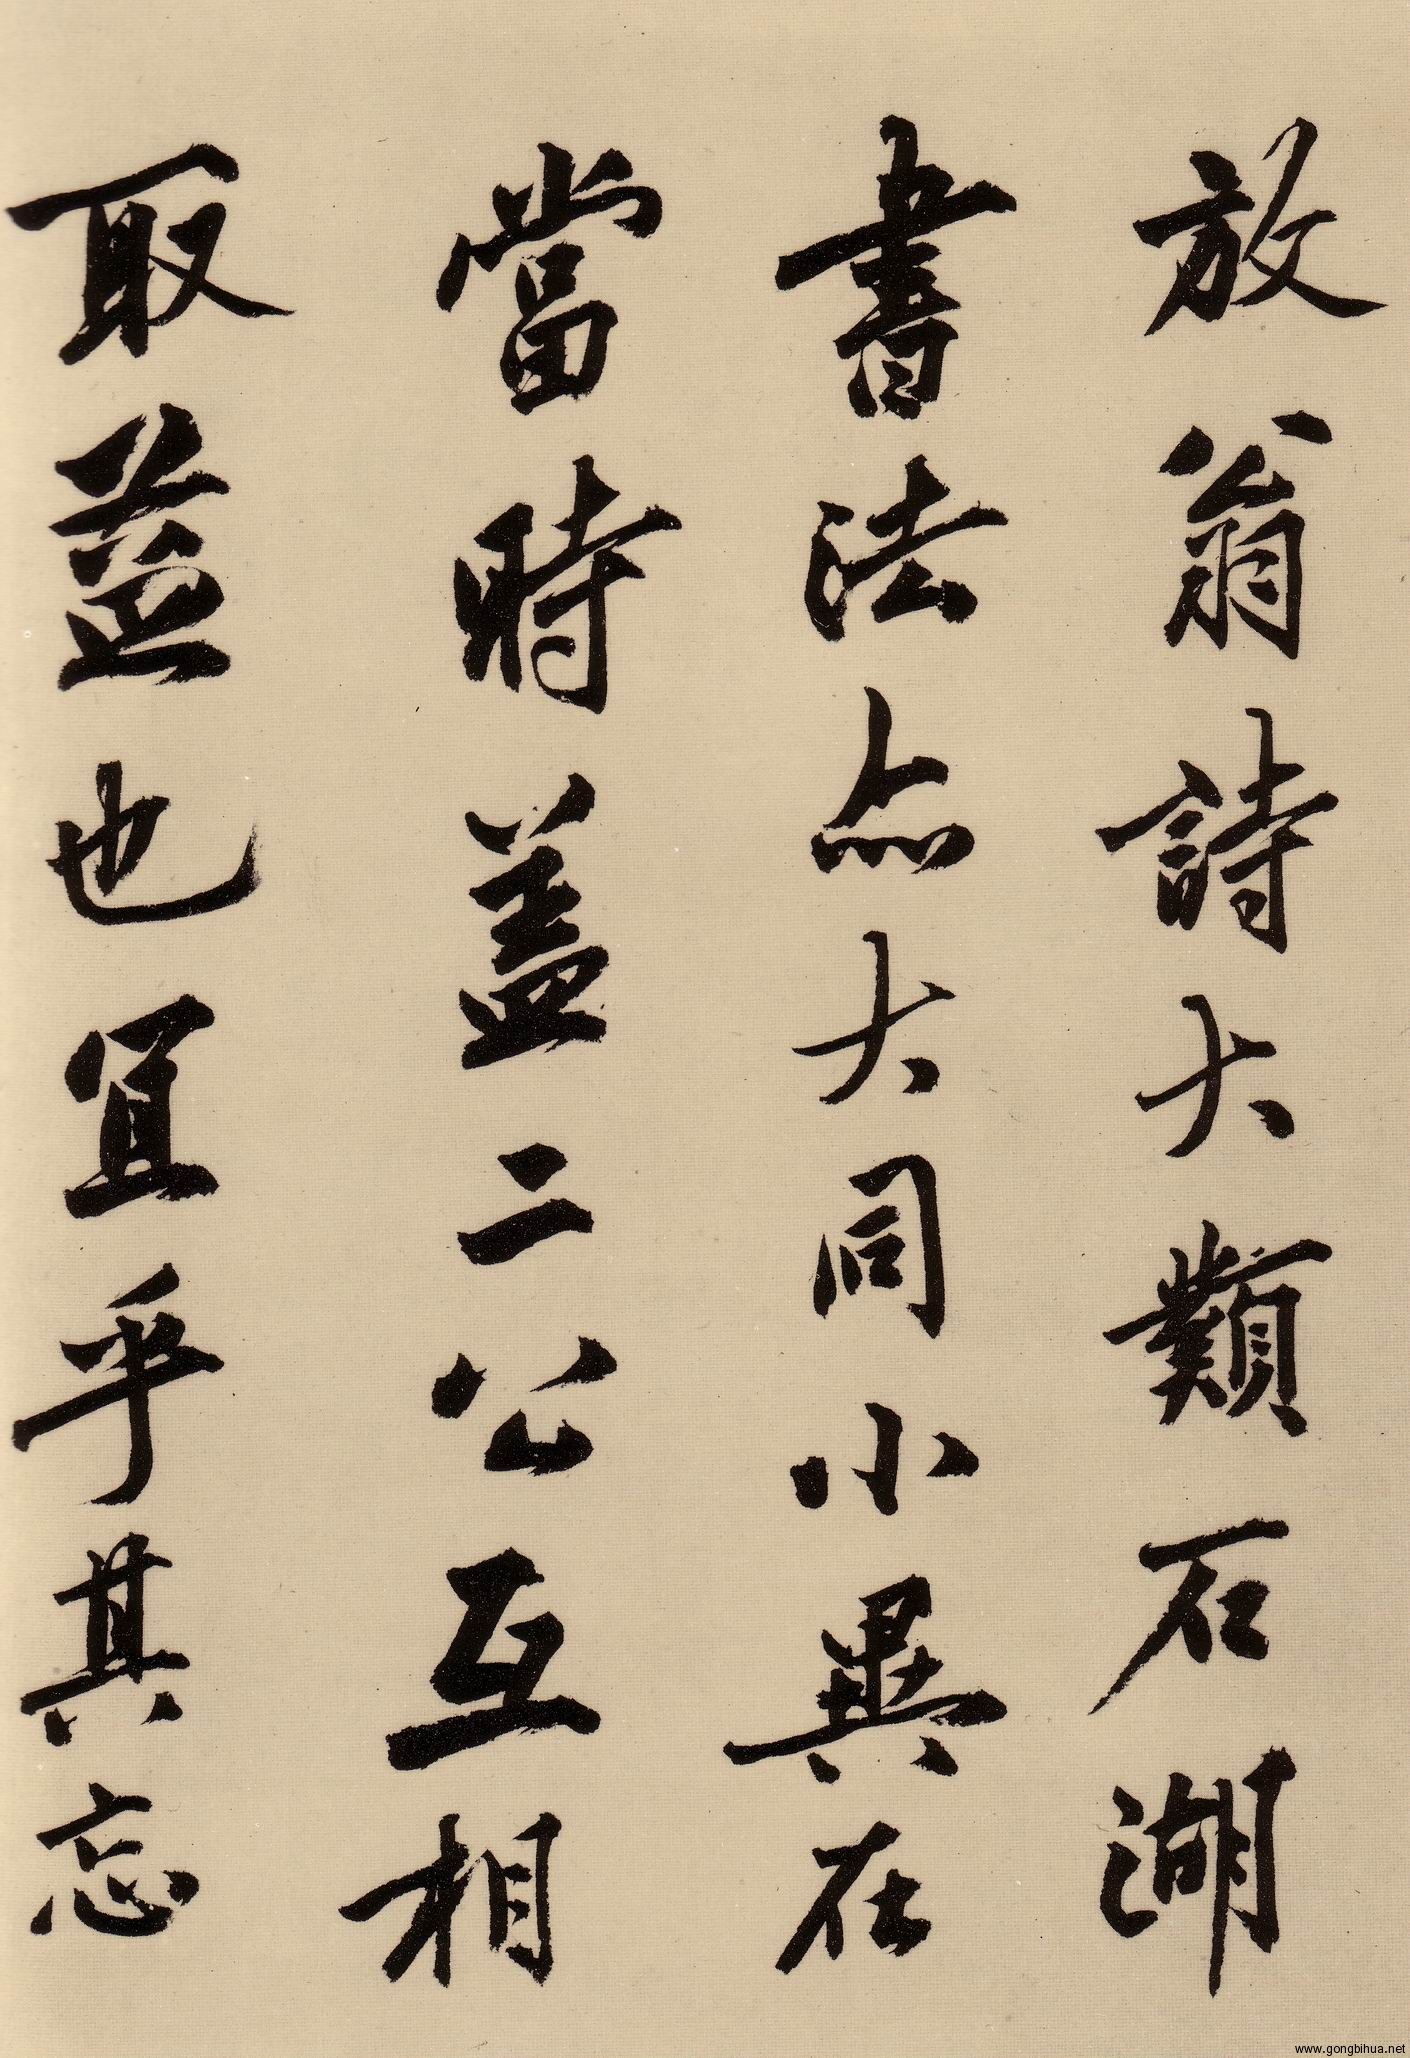 放翁詩大類石湖
書法亦大同小異在
當時蓋二公互相
取益也宜乎其忘
www.gongbihua.net